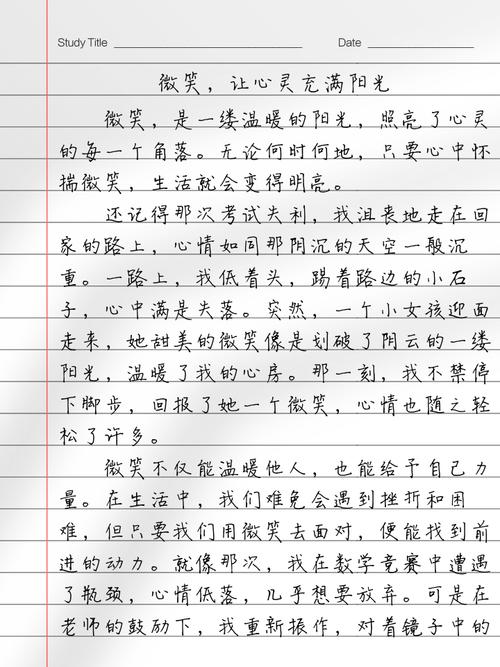 Study Title
Date
微笑，让心灵充满阳光
微笑，是一缕温暖的阳光，照亮了心灵
的每一个角落。无论何时何地，只要心中怀
揣微笑，生活就会变得明亮。
还记得那次考试失利，我沮丧地走在回
家的路上，心情如同那阴沉的天空一般沉
重。一路上，我低着头，踢着路边的小石
子，心中满是失落。突然，一个小女孩迎面
走来，她甜美的微笑像是划破了阴云的一缕
阳光，温暖了我的心房。那一刻，我不禁停
下脚步，回报了她一个微笑，心情也随之轻
松了许多。
微笑不仅能温暖他人，也能给予自己力
量。在生活中，我们难免会遇到挫折和困
难，但只要我们用微笑去面对，便能找到前
进的动力。就像那次，我在数学竞赛中遭遇
了瓶颈，心情低落，几乎想要放弃。可是在
老师的鼓励下，我重新振作，对着镜子中的